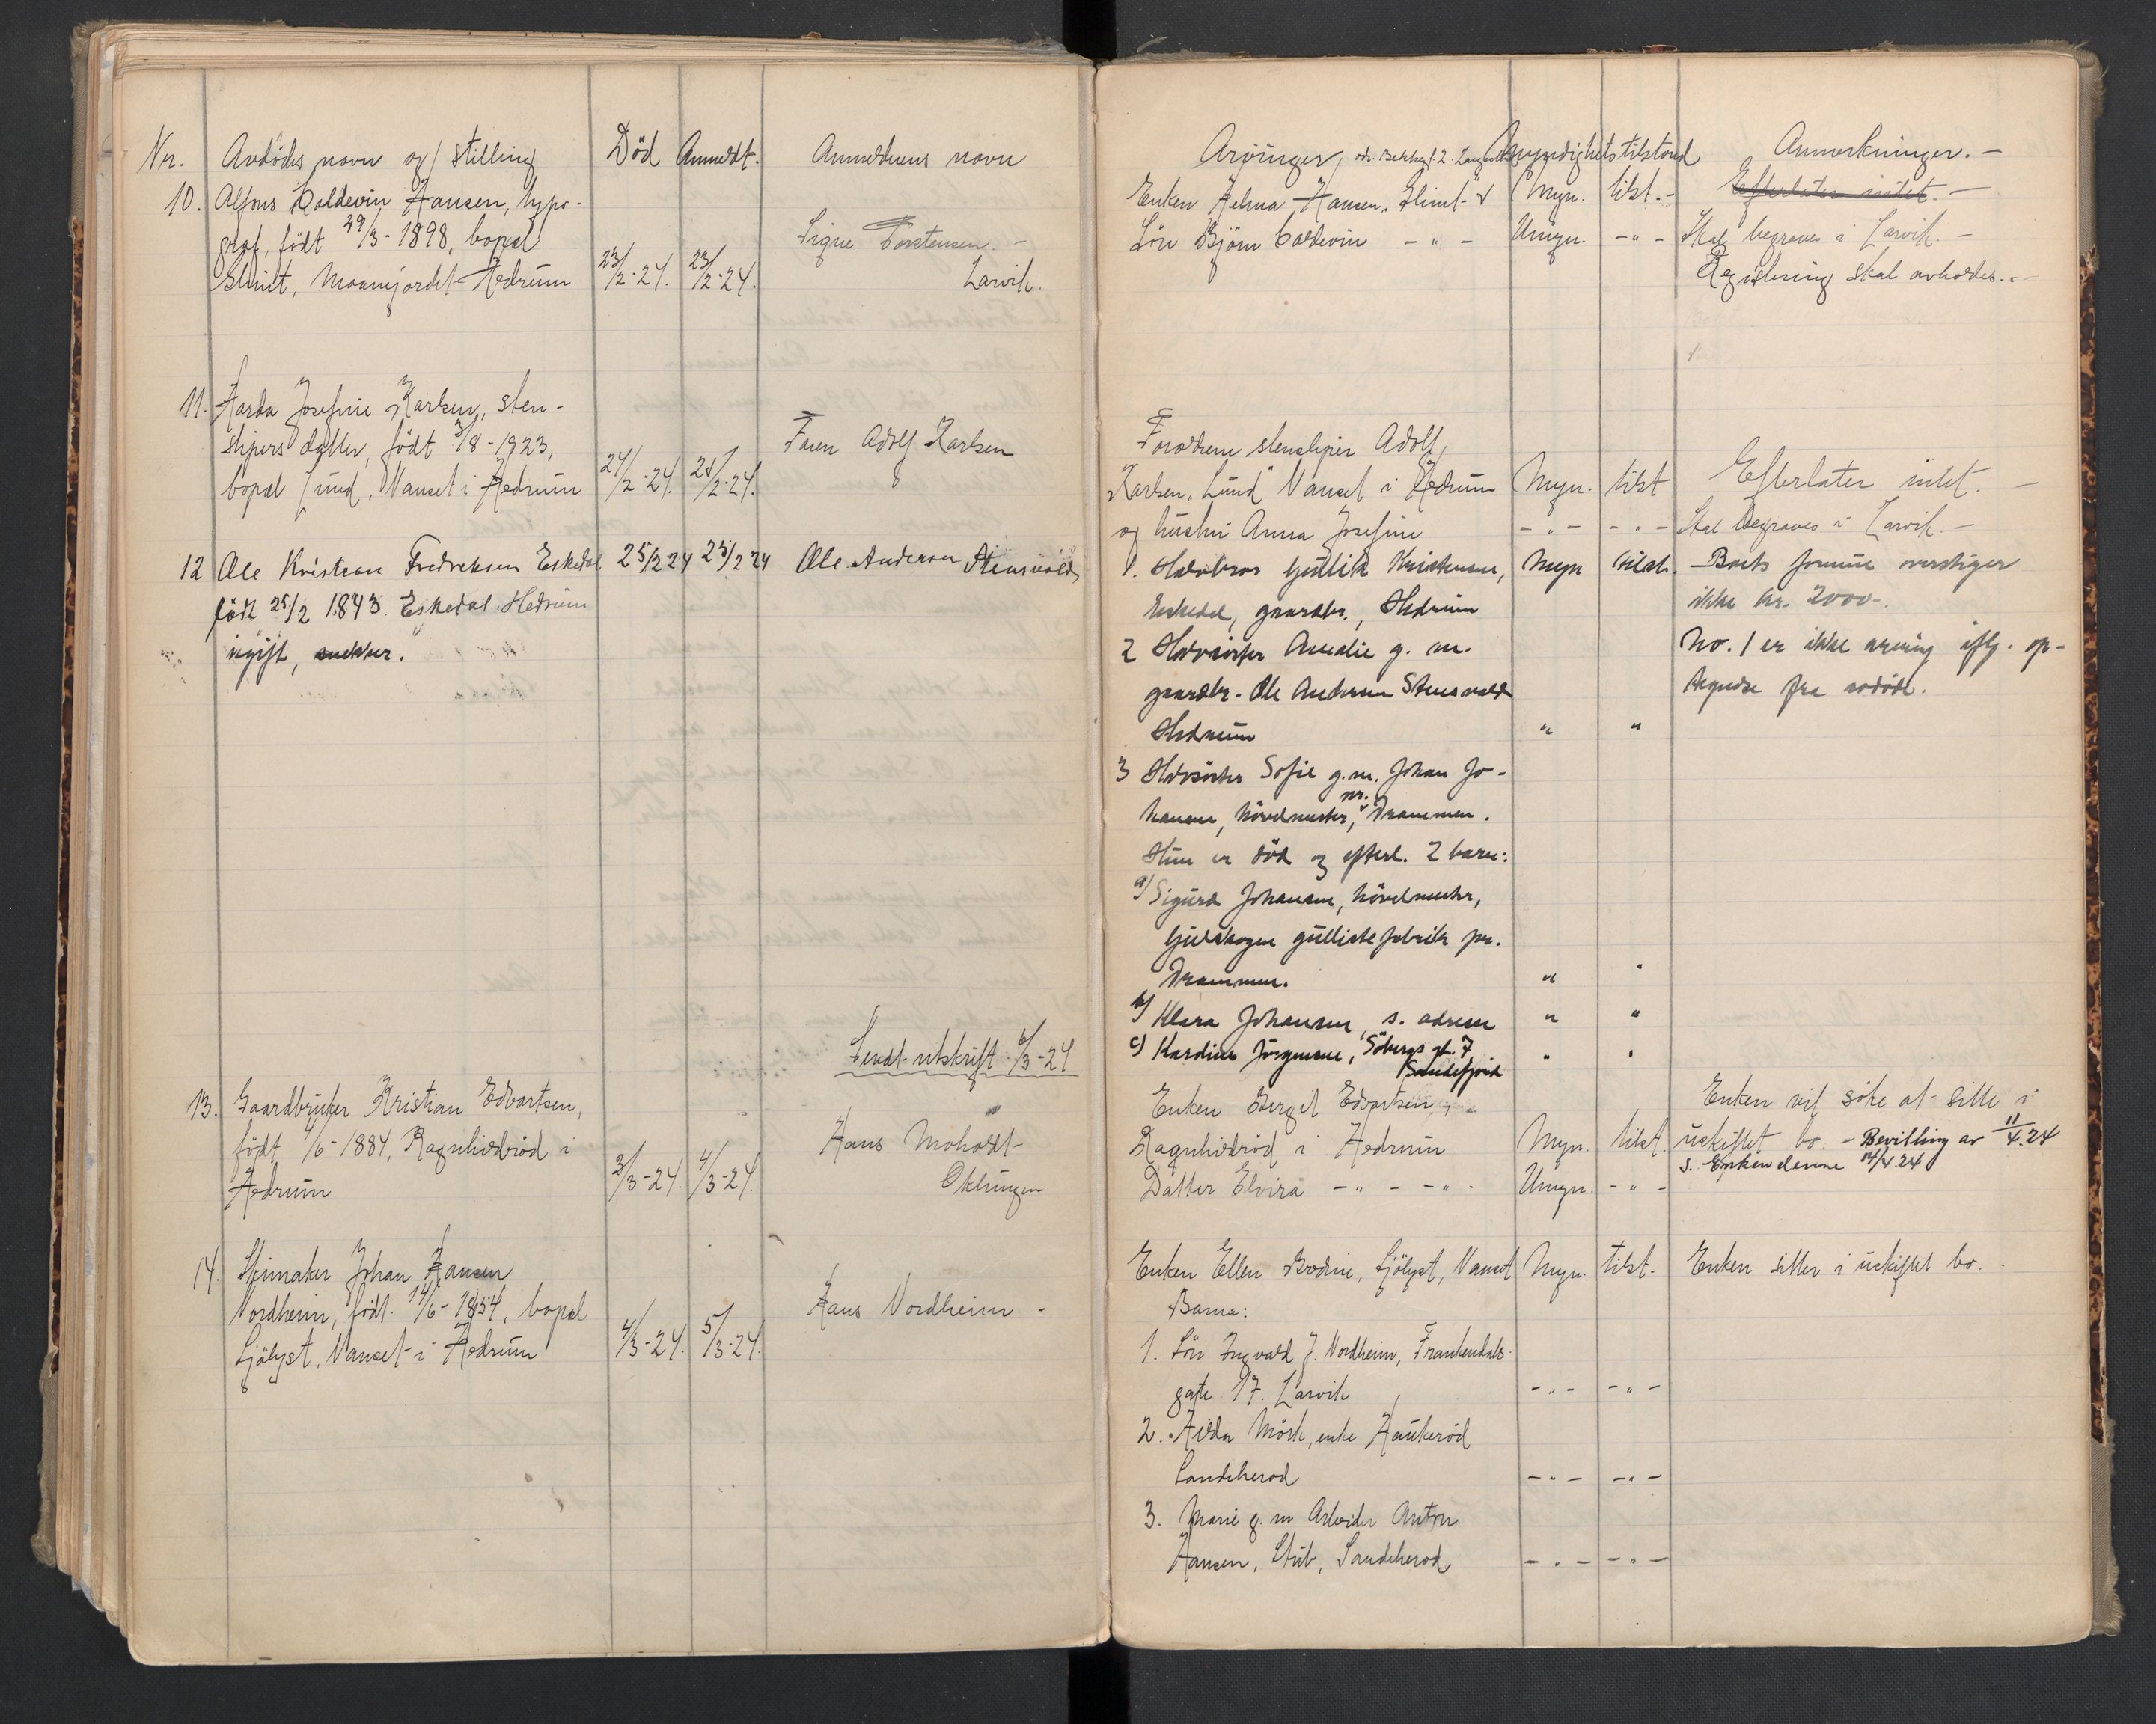 Nr. Avdödes navn og stilling Död Anmeldt. Anmelderens navn
10. Alfons Baldevin Hansen, typo-
graf, født 29/3-1898, bopæl
Glimt, Moanejordet-Hedrum 23/2-24. 23/2-24.
Signe Torstensen. -
Larvik.
11. Harda Josefine Karlsen, sten-
slipers datter, födt 3/8-1923,
bopæl Lund, Nanset i Hedrum 24/2-24. 25/2-24.
Faren Adolf Karlsen
12 Ole Kristian Fredriksen Eskedal 25/2 24 25/2 24 Ole Anderson Stensvold
født 25/2 1843. Eskedal Hedrum
ugift, snekker.
Sendt utskrift 6/3-24
13. Gaardbruker Kristian Edvartsen,
født 1/6-1884, Ragnhildröd i
Hedrum 3/3-24. 4/3-24.
Hans Moholdt
Oklungen
14. Skomaker Johan Hansen
Nordheim, födt. 14/6-1854, bopæl
Sjölyst, Nanset i Hedrum 4/3-24. 5/3-24.
Hans Nordheim -
Arvinger, Myndighetstilstand Anmerkninger. -
Enken Helma Hansen, Glimt Myn. tilst. - Efterlater intet. -
Sön Björn Baldevin - " - Umyn. - " - Skal begraves i Larvik. -
Registrering skal avholdes. -
Forældrene stensliper Adolf
Karlsen "Lund" Nanset i Hedrum Myn. tilst Efterlater intet. -
og hustru Anna Josefine - " - - " - Skal begraves i Larvik. -
1. Halvbror Gullik Kristensen, Myn tilst. Boets formue overstiger
Eskedal, gaardbr., Hedrum ikke kr. 2000-.
2 Halvsöster Amalie g. m. No. 1 er ikke arving iflg. op-
gaardbr. Ole Andersen Stensvold tegnelse fra avdöde.
Hedrum " "
3 Halvsöster Sofie g. m. Johan Jo-
hansen, hövelmester, pr. Drammen.
Hun er död og efterl. 2 barn:
a) Sigurd Johansen, hövelmester,
Gulskogen gullistefabrik pr.
Drammen. " "
b) Klara Johansen, s. adresse " "
c) Kardine Jörgensen, Söbergs gt. 7 " "
Sandefjord
Enken Bergit Edvartsen, Enken vil söke at sitte i
Ragnhildröd i Hedrum Myn. tilst. uskiftet bo. - Bevilling av 11/4.24
s. Enken denne 14/4.24
Datter Elvira - " - - " - Umyn. - " -
Enken Ellen Bodine, Sjölyst, Nanset Myn. tilst. Enken sitter i uskiftet bo.
Barna:
1. Sön Ingvald J. Nordheim, Frankendals-
gate 17. Larvik - " - - " -
2. Hilda Mörk, enke Haukeröd
Sandeherad - " - - " -
3. Marie g. m Arbeider Anton
Hansen, Stub, Sandeherad - " - - " -